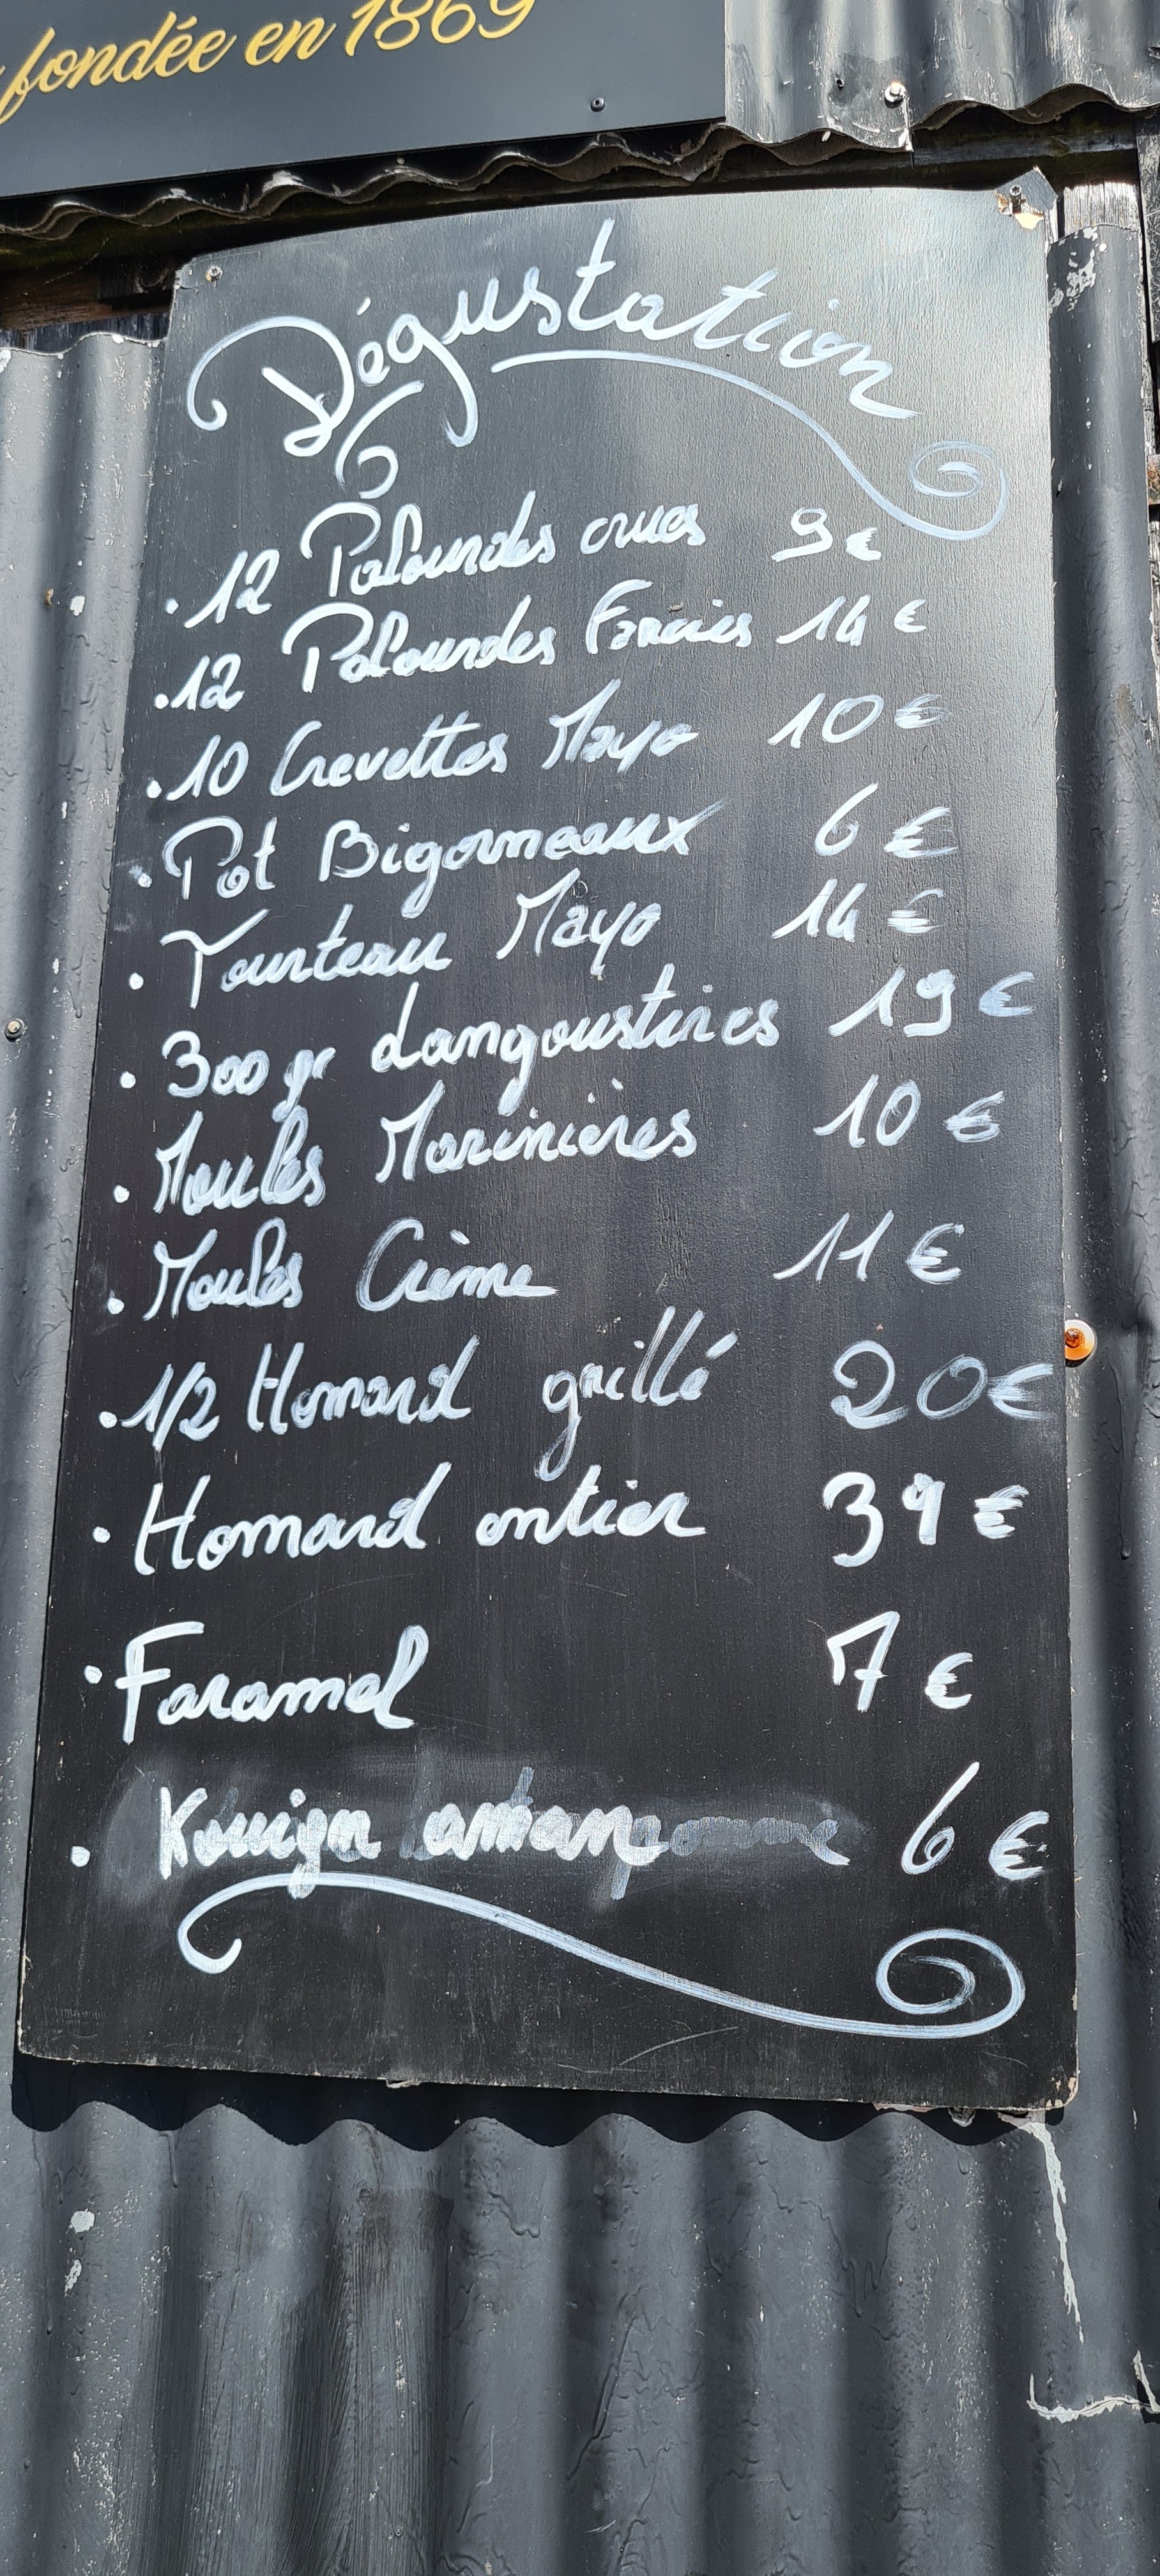 fondée en 1869
Dégustation
. 12 Palourdes crues 9€
. 12 Palourdes Farcies 14€
. 10 Crevettes Mayo 10€
. Pot Bigorneaux 6€
. Tourteau Mayo 14€
. 300 gr Langoustines 19€
. Moules Marinières 10€
. Moules Crème 11€
. 1/2 Homard grillé 20€
. Homard entier 39€
. Faramel 7€
. Kouign amann 6€